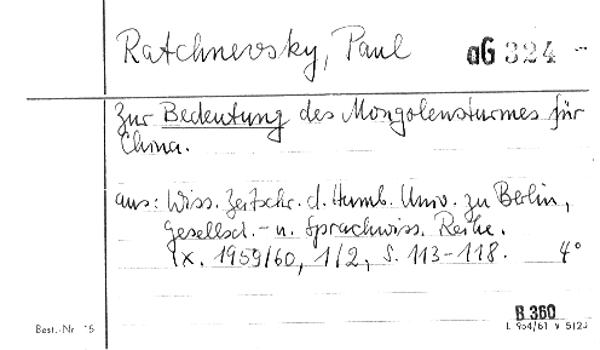 Ratchnevsky, Paul aG 324 -
Zur Bedeutung des Mongolensturmes für
China.
aus: Wiss. Zeitschr. d. Humb. Univ. zu Berlin,
Gesellsch.- u. Sprachwiss. Reihe.
IX. 1959/60, 1/2, S. 113-118. 4°
B 360
Best.-Nr 15 L 954/61 V 5123